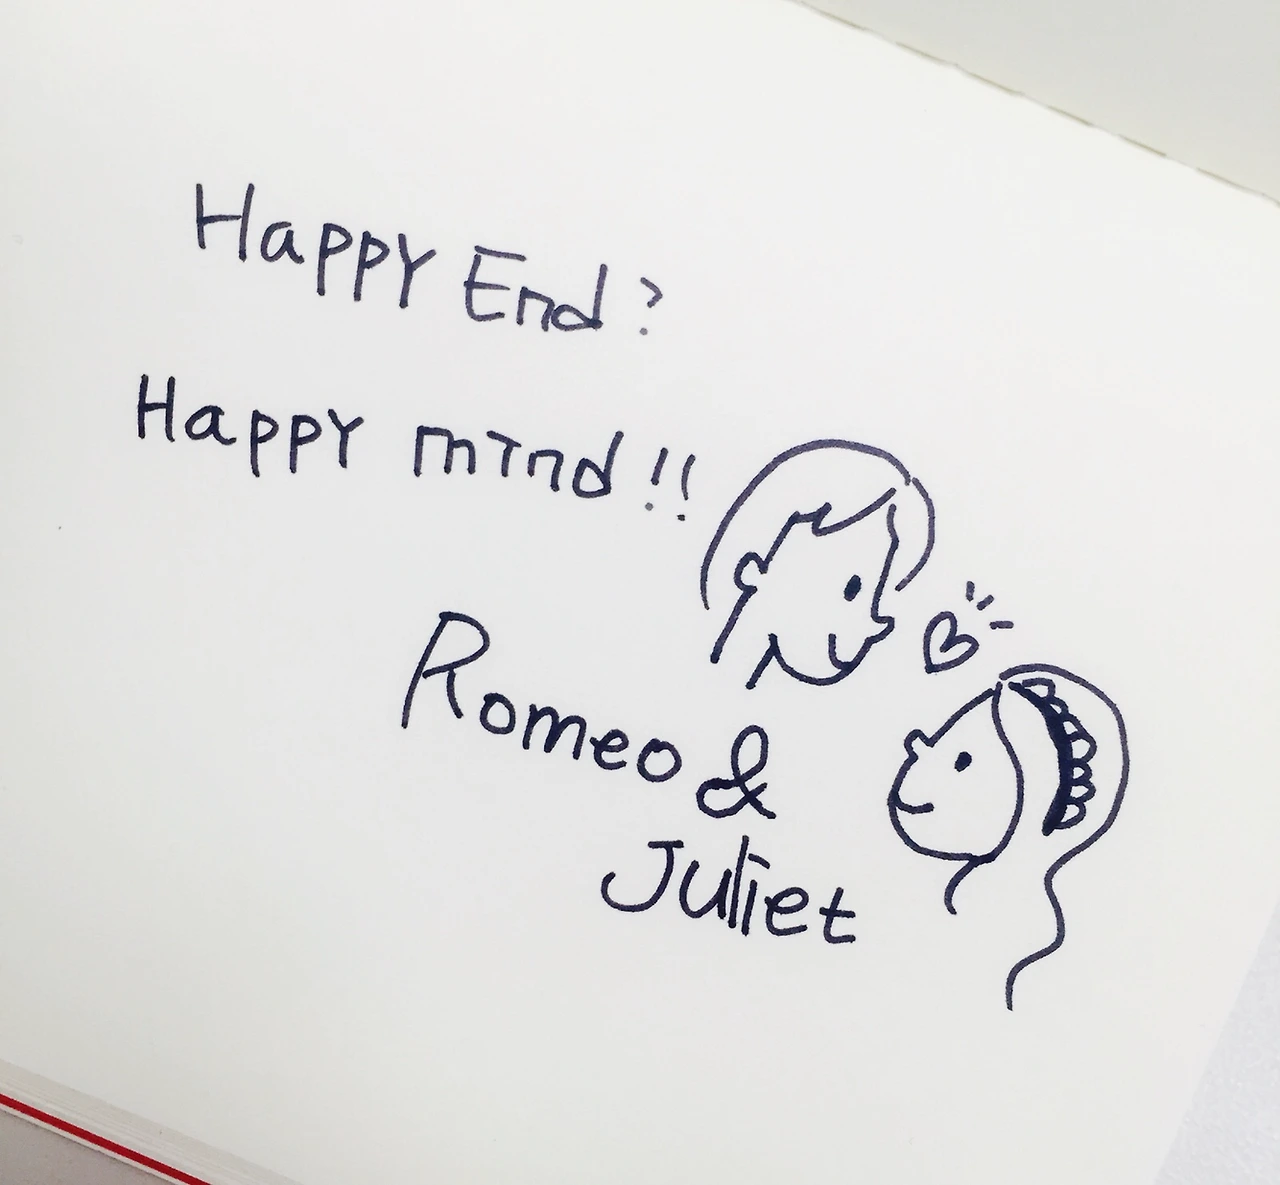 Happy End?
Happy mind!!
Romeo &
Juliet